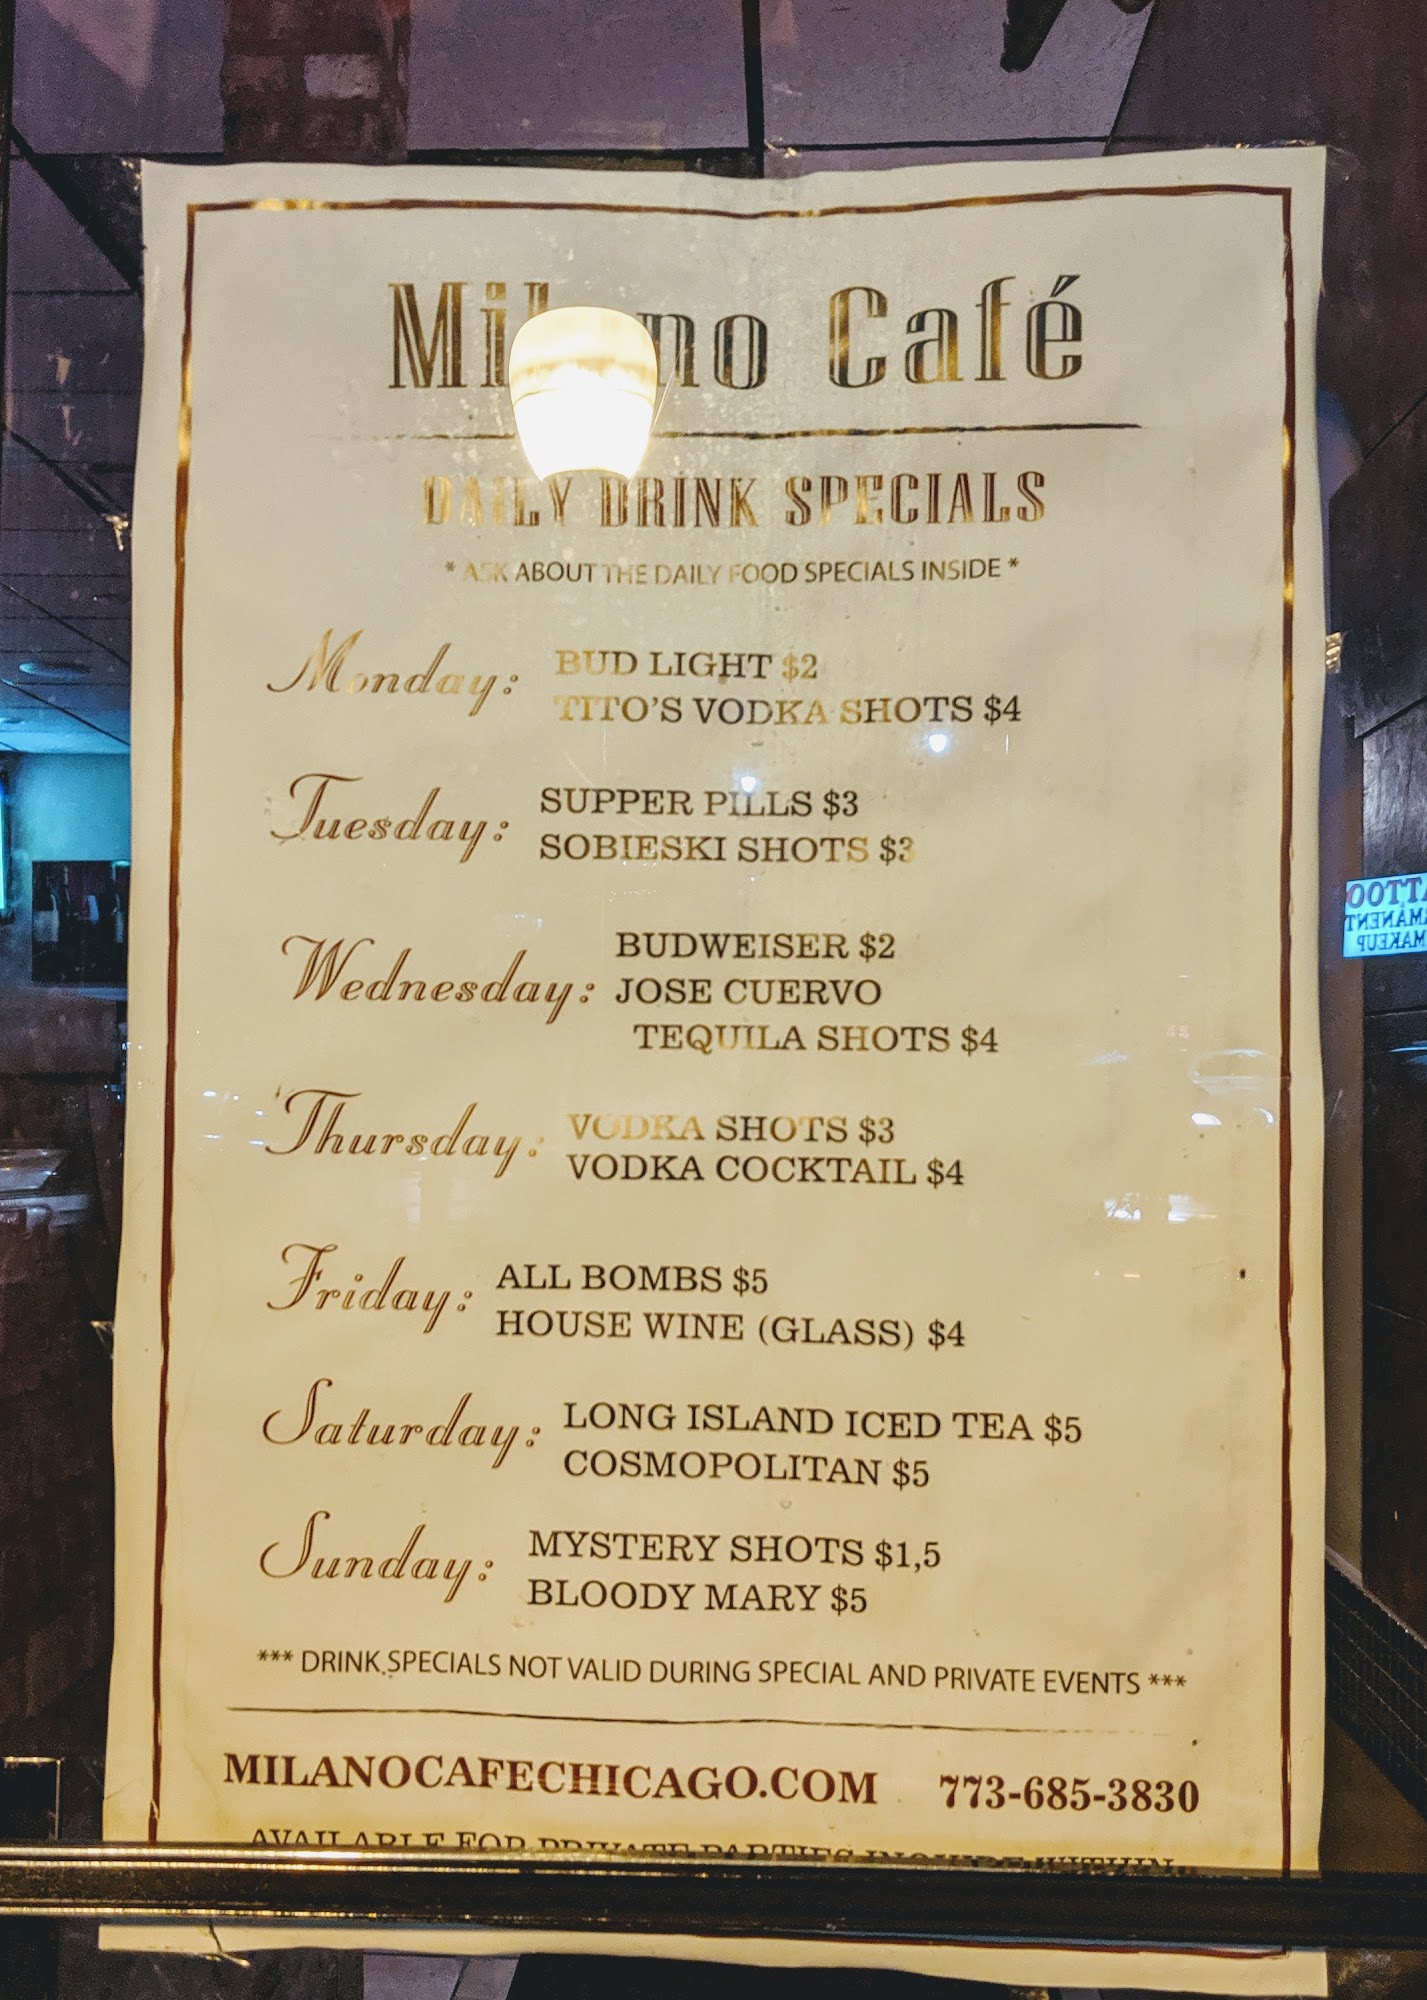 Milano Café
DAILY DRINK SPECIALS
* ASK ABOUT THE DAILY FOOD SPECIALS INSIDE *
Monday: BUD LIGHT $2
TITO'S VODKA SHOTS $4
Tuesday: SUPPER PILLS $3
SOBIESKI SHOTS $3
Wednesday: BUDWEISER $2
JOSE CUERVO
TEQUILA SHOTS $4
Thursday: VODKA SHOTS $3
VODKA COCKTAIL $4
Friday: ALL BOMBS $5
HOUSE WINE (GLASS) $4
Saturday: LONG ISLAND ICED TEA $5
COSMOPOLITAN $5
Sunday: MYSTERY SHOTS $1,5
BLOODY MARY $5
*** DRINK SPECIALS NOT VALID DURING SPECIAL AND PRIVATE EVENTS ***
MILANOCAFECHICAGO.COM 773-685-3830
AVAILABLE FOR PRIVATE PARTIES INQUIRE WITHIN
MAKEUP